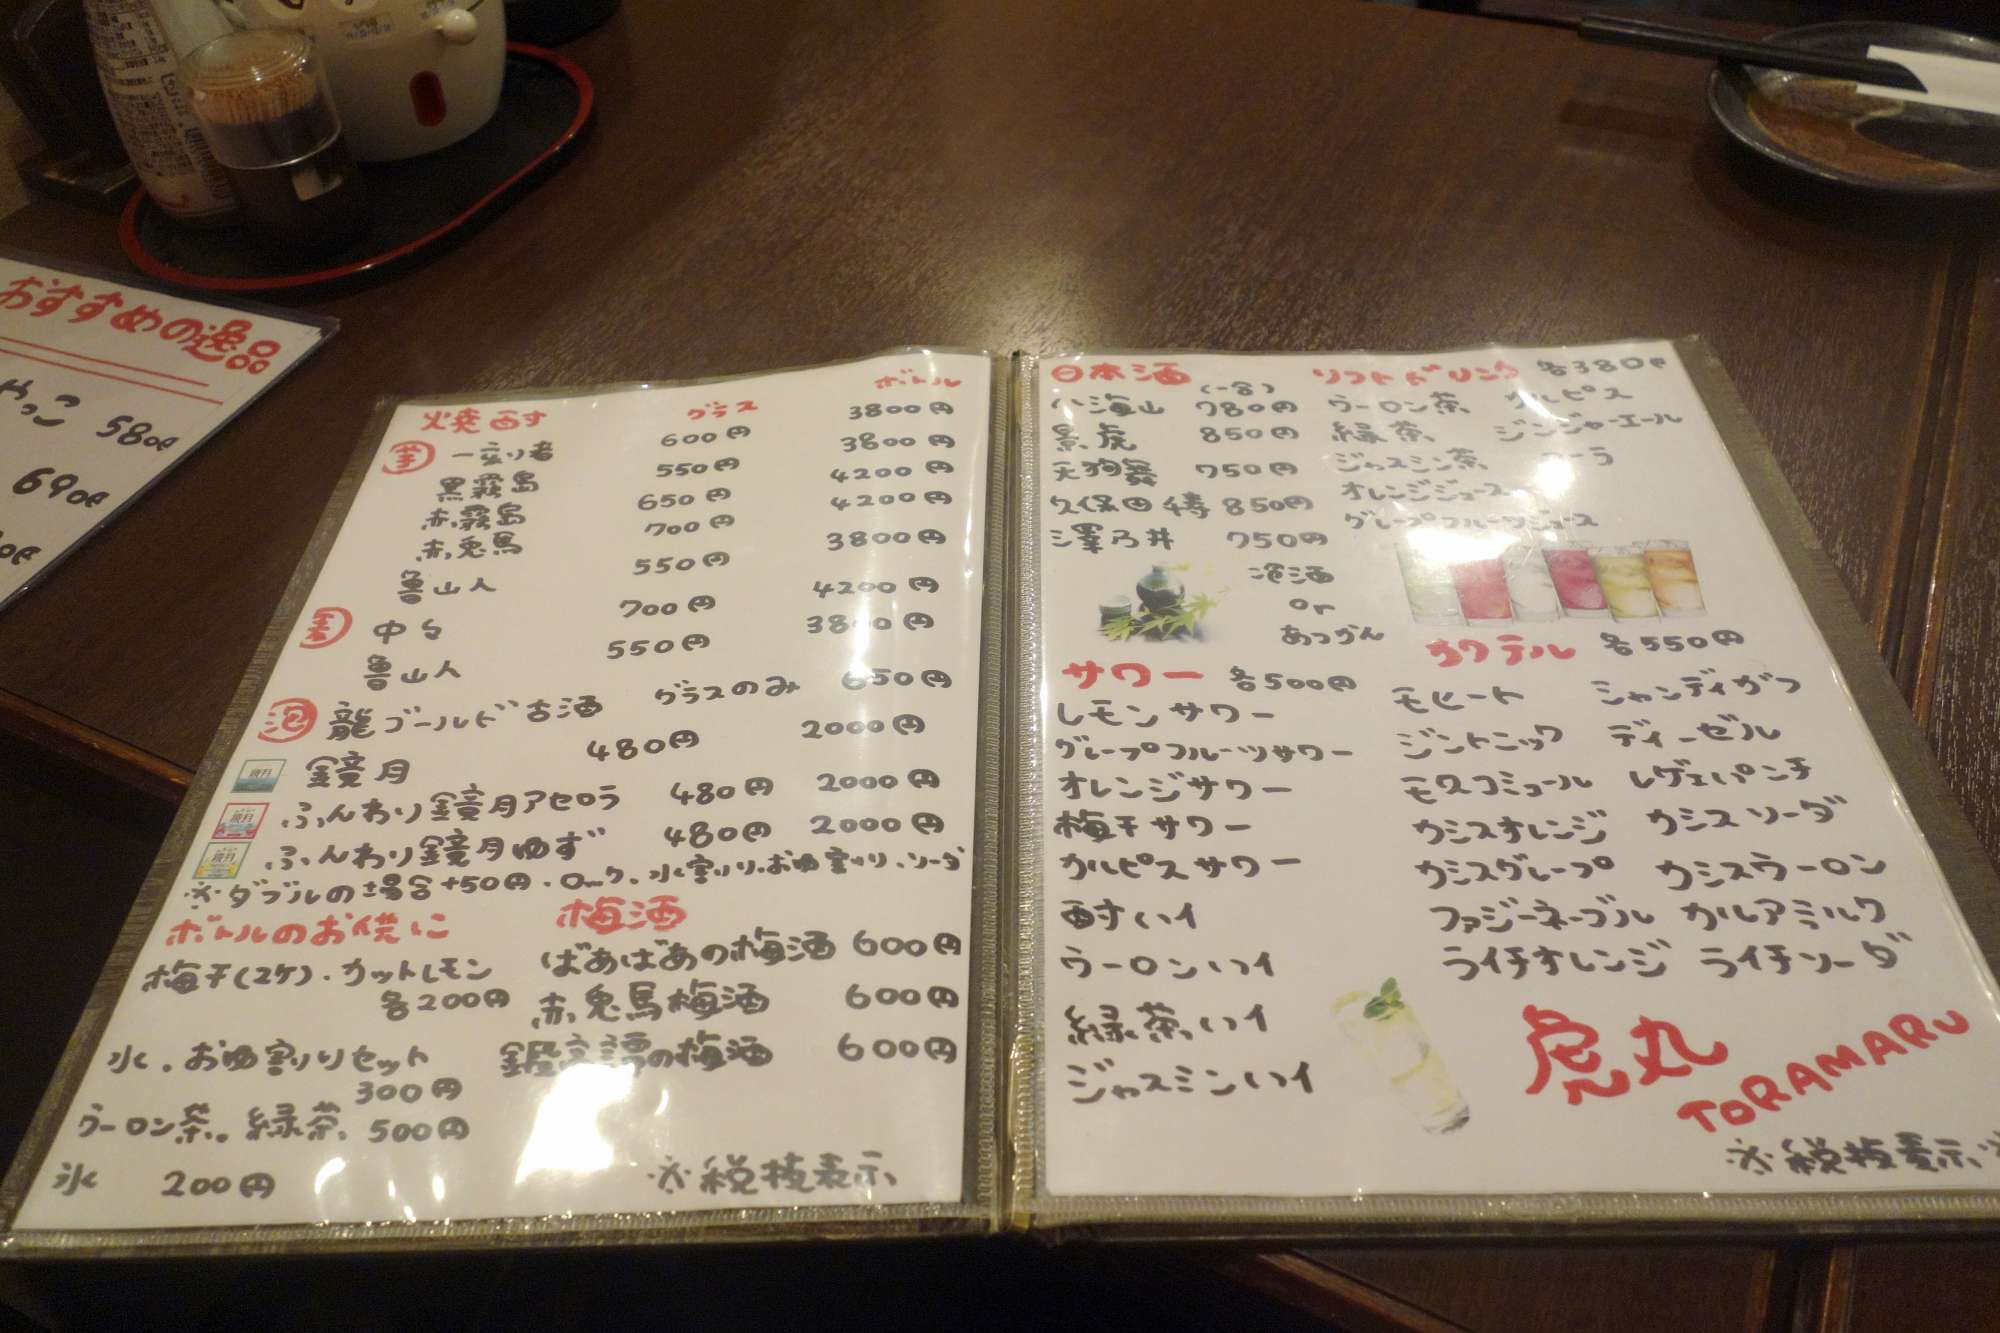 おすすめの逸品
やっこ 580円
690円
焼酎 グラス ボトル
芋 一刻者 600円 3800円
黒霧島 550円 3800円
赤霧島 650円 4200円
赤兎馬 700円 4200円
魯山人 550円 3800円
麦 中々 700円 4200円
魯山人 550円 3800円
泡 龍ゴールド古酒 グラスのみ 650円
鏡月 480円 2000円
ふんわり鏡月アセロラ 480円 2000円
ふんわり鏡月ゆず 480円 2000円
※ダブルの場合+50円・ロック、水割り、お湯割り、ソーダ
ボトルのお供に
梅干(2ケ)・カットレモン
各200円
氷・お湯割りセット
300円
ウーロン茶。緑茶 500円
氷 200円
梅酒
ばあばあの梅酒 600円
赤兎馬梅酒 600円
の梅酒 600円
※税抜表示
日本酒 (一合)
八海山 780円
景虎 850円
天狗舞 750円
久保田千寿 850円
澤乃井 750円
冷酒
or
あつかん
ソフトドリンク 各380円
ウーロン茶 カルピス
緑茶 ジンジャーエール
ジャスミン茶 コーラ
オレンジジュース
グレープフルーツジュース
サワー 各500円
レモンサワー
グレープフルーツサワー
オレンジサワー
梅干サワー
カルピスサワー
酎ハイ
ウーロンハイ
緑茶ハイ
ジャスミンハイ
カクテル 各550円
モヒート シャンディガフ
ジントニック ディーゼル
モスコミュール レゲェパンチ
カシスオレンジ カシスソーダ
カシスグレープ カシスウーロン
ファジーネーブル カルアミルク
ライチオレンジ ライチソーダ
虎丸
TORAMARU
※税抜表示※